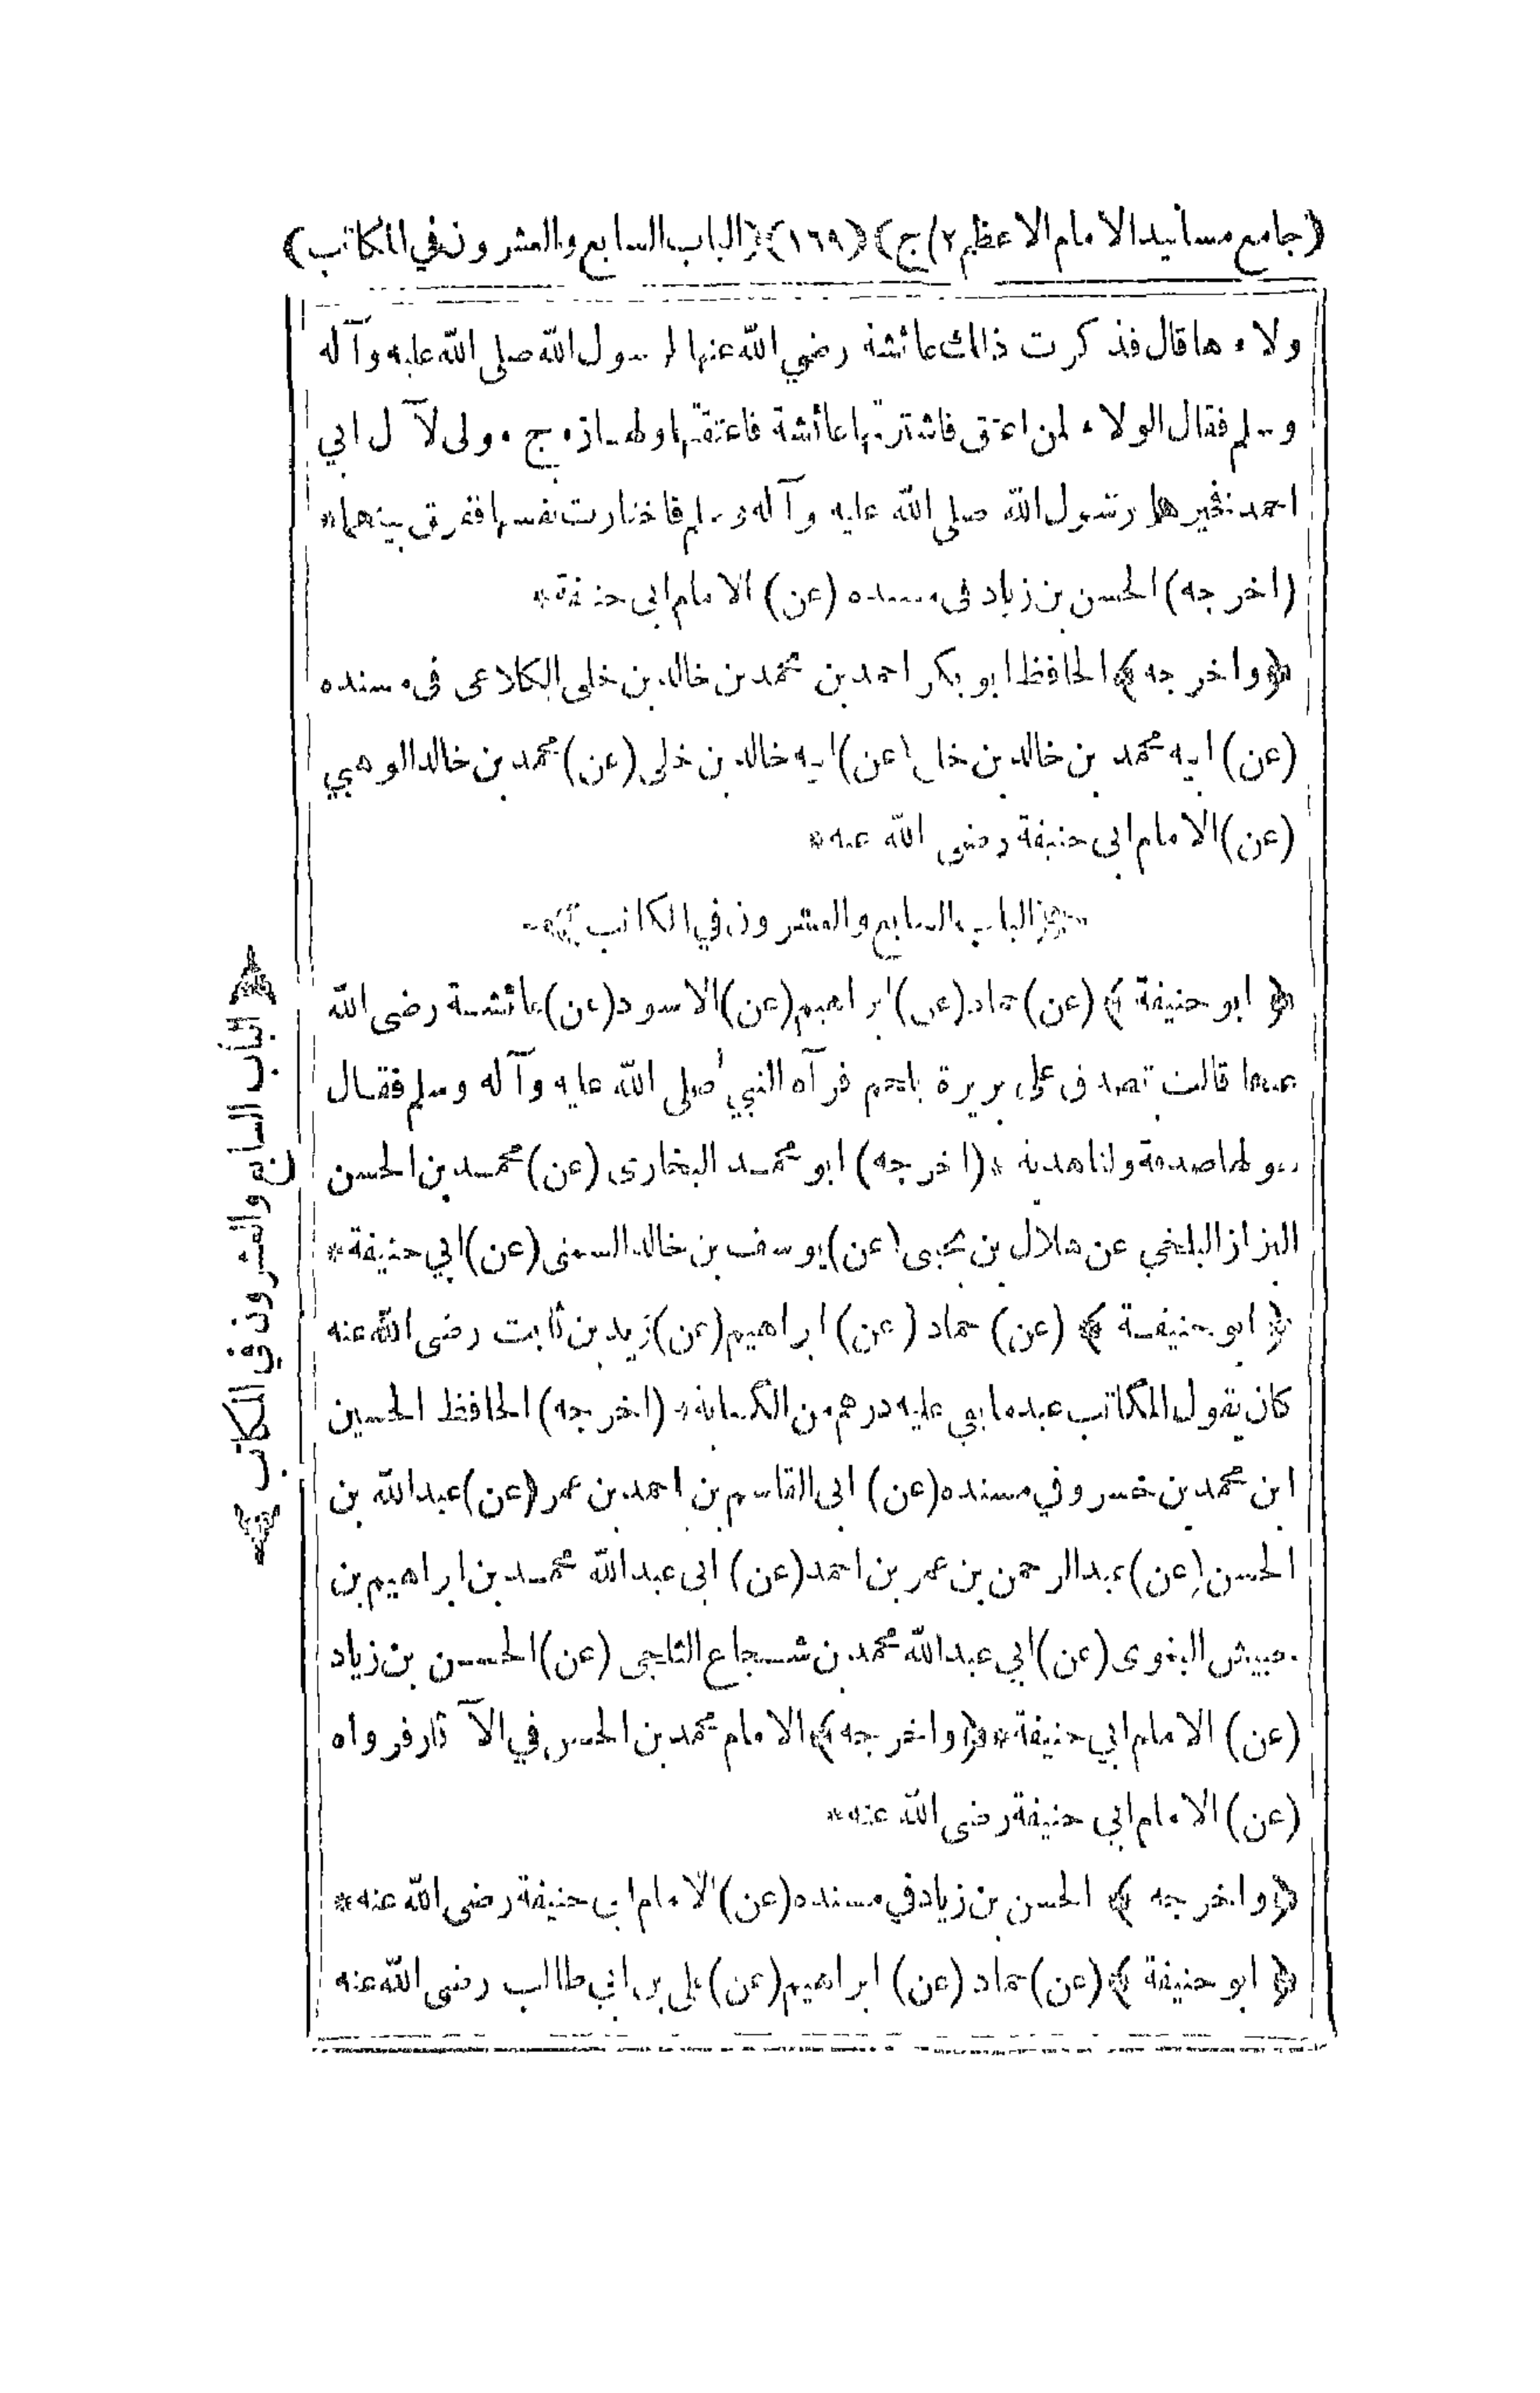 (جامع مسانيد الامام الاعظم ٢/ج) (١٦٩) (الباب السابع والعشرون في المكاتب)
ولاءها قال فذكرت ذلك عائشة رضي الله عنها لرسول الله صلى الله عليه وآله
وسلم فقال الولاء لمن اعتق فاشترتها عائشة فاعتقتها ولها زوج مولى لآل ابي
احمد فخيرها رسول الله صلى الله عليه وآله وسلم فاختارت نفسها ففرق بينهما*
(اخرجه) الحسن بن زياد في مسنده (عن) الامام ابي حنيفة*
﴿واخرجه﴾ الحافظ ابو بكر احمد بن محمد بن خالد بن خلي الكلاعي في مسنده
(عن) ابيه محمد بن خالد بن خلي (عن) ابيه خالد بن خلي (عن) محمد بن خالد الوهبي
(عن) الامام ابي حنيفة رضي الله عنه*
﴿الباب السابع والعشرون في المكاتب﴾
﴿ابو حنيفة﴾ (عن) حماد (عن) ابراهيم (عن) الاسود (عن) عائشة رضى الله
عنها قالت تصدق على بريرة بلحم فرآه النبي صلى الله عليه وآله وسلم فقال
هو لها صدقة ولنا هدية *(اخرجه) ابو محمد البخارى (عن) محمد بن الحسن
البزاز البلخي عن هلال بن يحيى (عن) يوسف بن خالد السمتى (عن) ابي حنيفة*
﴿ابو حنيفة﴾ (عن) حماد (عن) ابراهيم (عن) زيد بن ثابت رضى الله عنه
كان يقول المكاتب عبد ما بقي عليه درهم من الكتابة* (اخرجه) الحافظ الحسين
ابن محمد بن خسرو في مسنده (عن) ابى القاسم بن احمد بن عمر (عن) عبد الله بن
الحسن (عن) عبد الرحمن بن عمر بن احمد (عن) ابى عبد الله محمد بن ابراهيم بن
حبيش البغوى (عن) ابي عبد الله محمد بن شجاع الثلجى (عن) الحسن بن زياد
(عن) الامام ابي حنيفة*﴿واخرجه﴾ الامام محمد بن الحسن في الآثار فرواه
(عن) الامام ابي حنيفة رضى الله عنه*
﴿واخرجه﴾ الحسن بن زياد في مسنده (عن) الامام ابي حنيفة رضى الله عنه*
﴿ابو حنيفة﴾ (عن) حماد (عن) ابراهيم (عن) علي بن ابي طالب رضى الله عنه
﴿الباب السابع والعشرون في المكاتب﴾